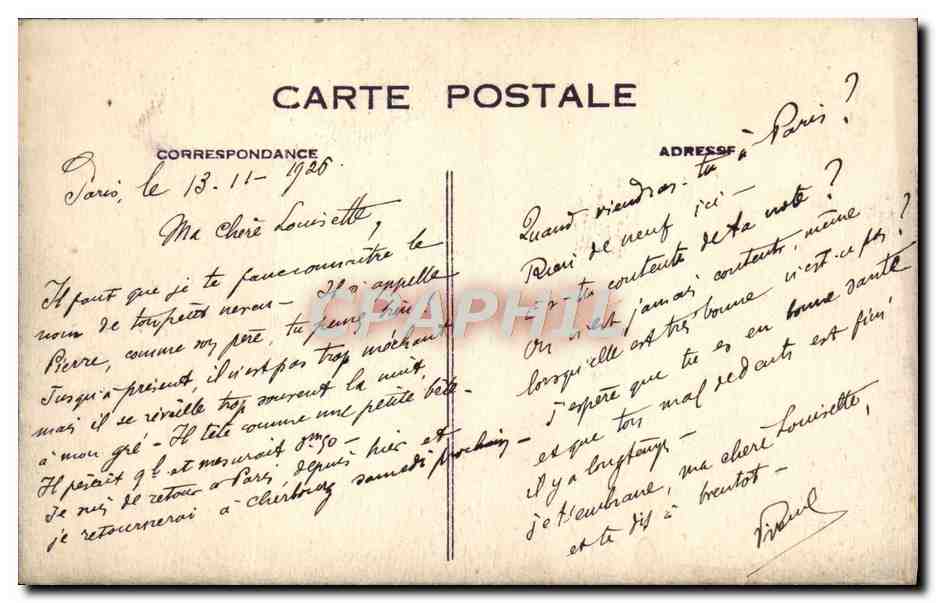 CARTE POSTALE
CORRESPONDANCE
Paris, le 13-11-1926.
Ma chère Louisette,
Il faut que je te fasse connaître le
nom de ton petit neveu - Il s'appelle
Pierre, comme son père, tu penses bien
Jusqu'à présent, il n'est pas trop méchant
mais il se réveille trop souvent la nuit,
à mon gré - Il tête comme une petite bête -
Il pesait 9l. et mesurait 0m50 -
Je suis de retour à Paris, depuis hier et
je retournerai à Cherbourg samedi prochain -
ADRESSE
Quand viendras-tu à Paris?
Rien de neuf ici -
Es-tu contente de ta note?
On n'est jamais contents, même
lorsqu'elle est très bonne n'est-ce pas?
J'espère que tu es en bonne santé
et que ton mal de dents est fini
il y a longtemps -
je t'embrasse, ma chère Louisette,
et te dis à bientôt -
CPAPHIL